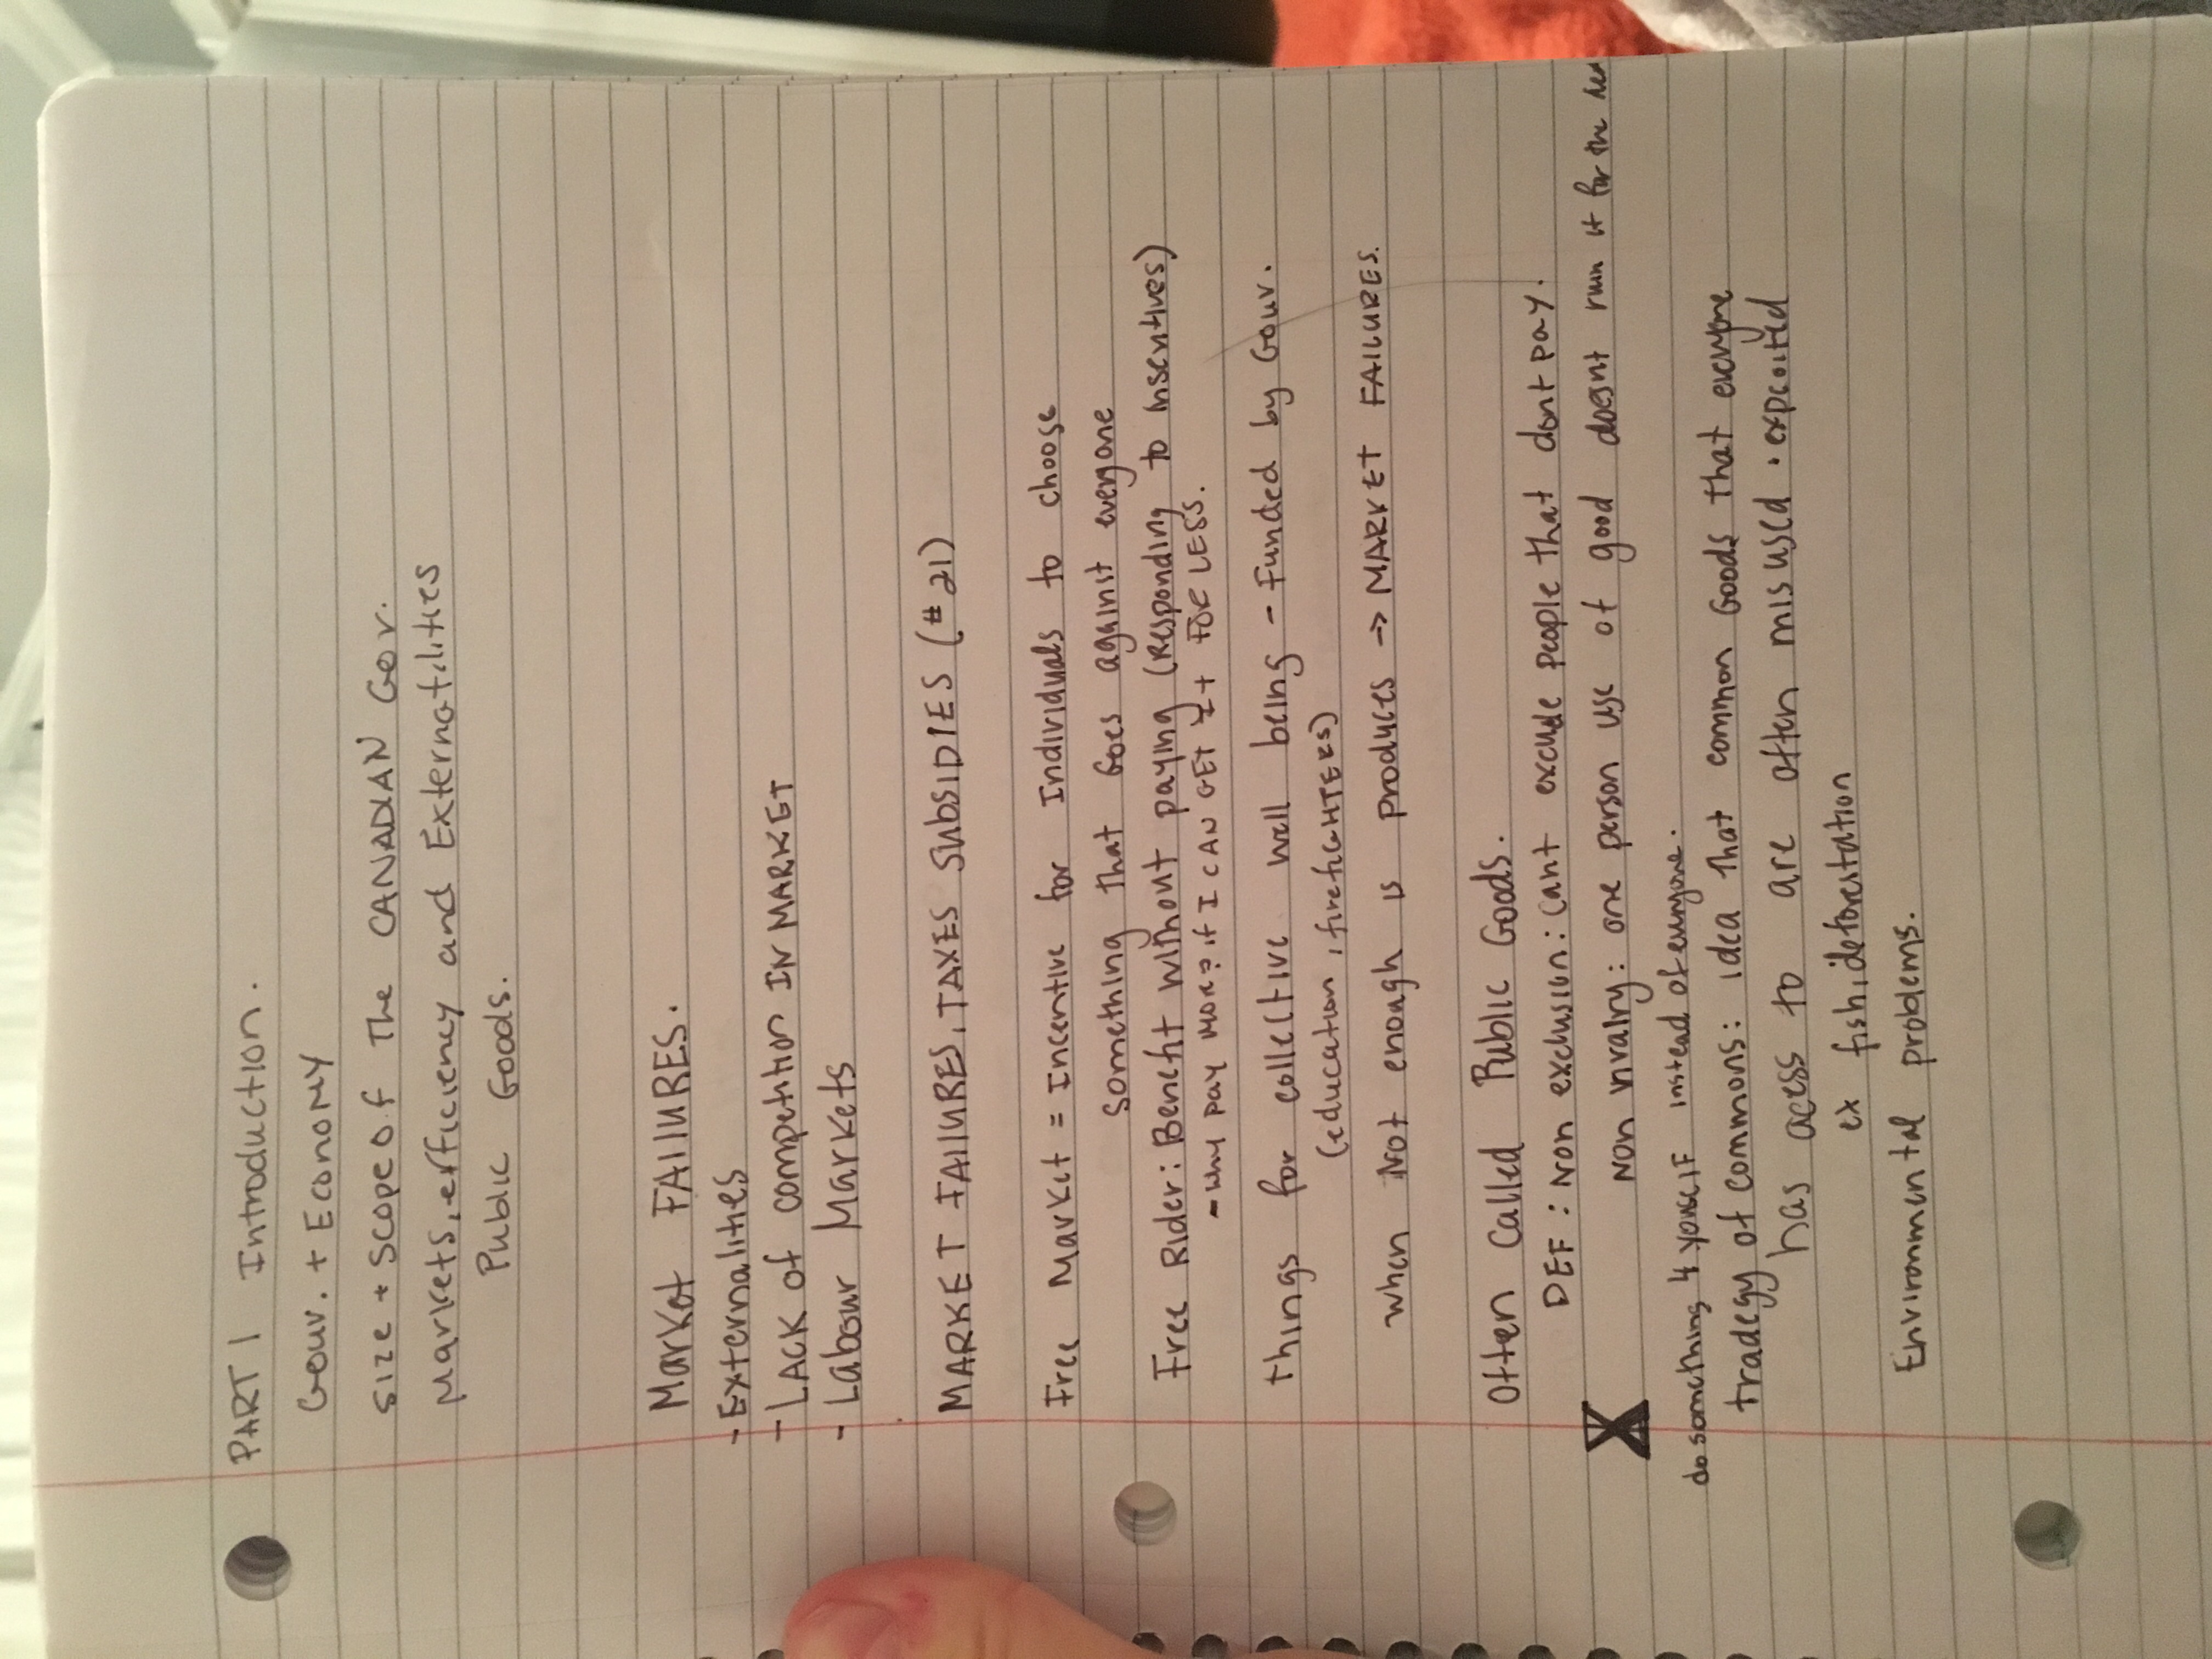 PART 1 Introduction.
Gouv. + Economy
Size + Scope of The CANADIAN Gov.
Markets, efficiency and Externatilities
Public Goods.
Market FAIlURES.
- Externalities
- LACK of competition IN MARKET
- Labour Markets
MARKET FAIlURES, TAXES SUbSIDIES (#21)
Free Market = Incentive for Individuals to choose
something that Goes against everyone
Free Rider: Benefit without paying (Responding to Insentives)
- Why pay more? if I CAN GET it FOR LESS.
things for collective well being - Funded by Gouv.
(education, firefiGHTERS)
when Not enough is produces → MARKET FAILURES.
Often Called Public Goods.
DEF: Non exclusion: Cant exclude people that dont pay.
Non rivalry: one person use of good doesnt ruin it for the
do something 4 yourself instead of everyone.
tradegy of commons: idea that common Goods that everyone
has acess to are often misused • expecoited
ex fish, deforestation
Environmental problems.